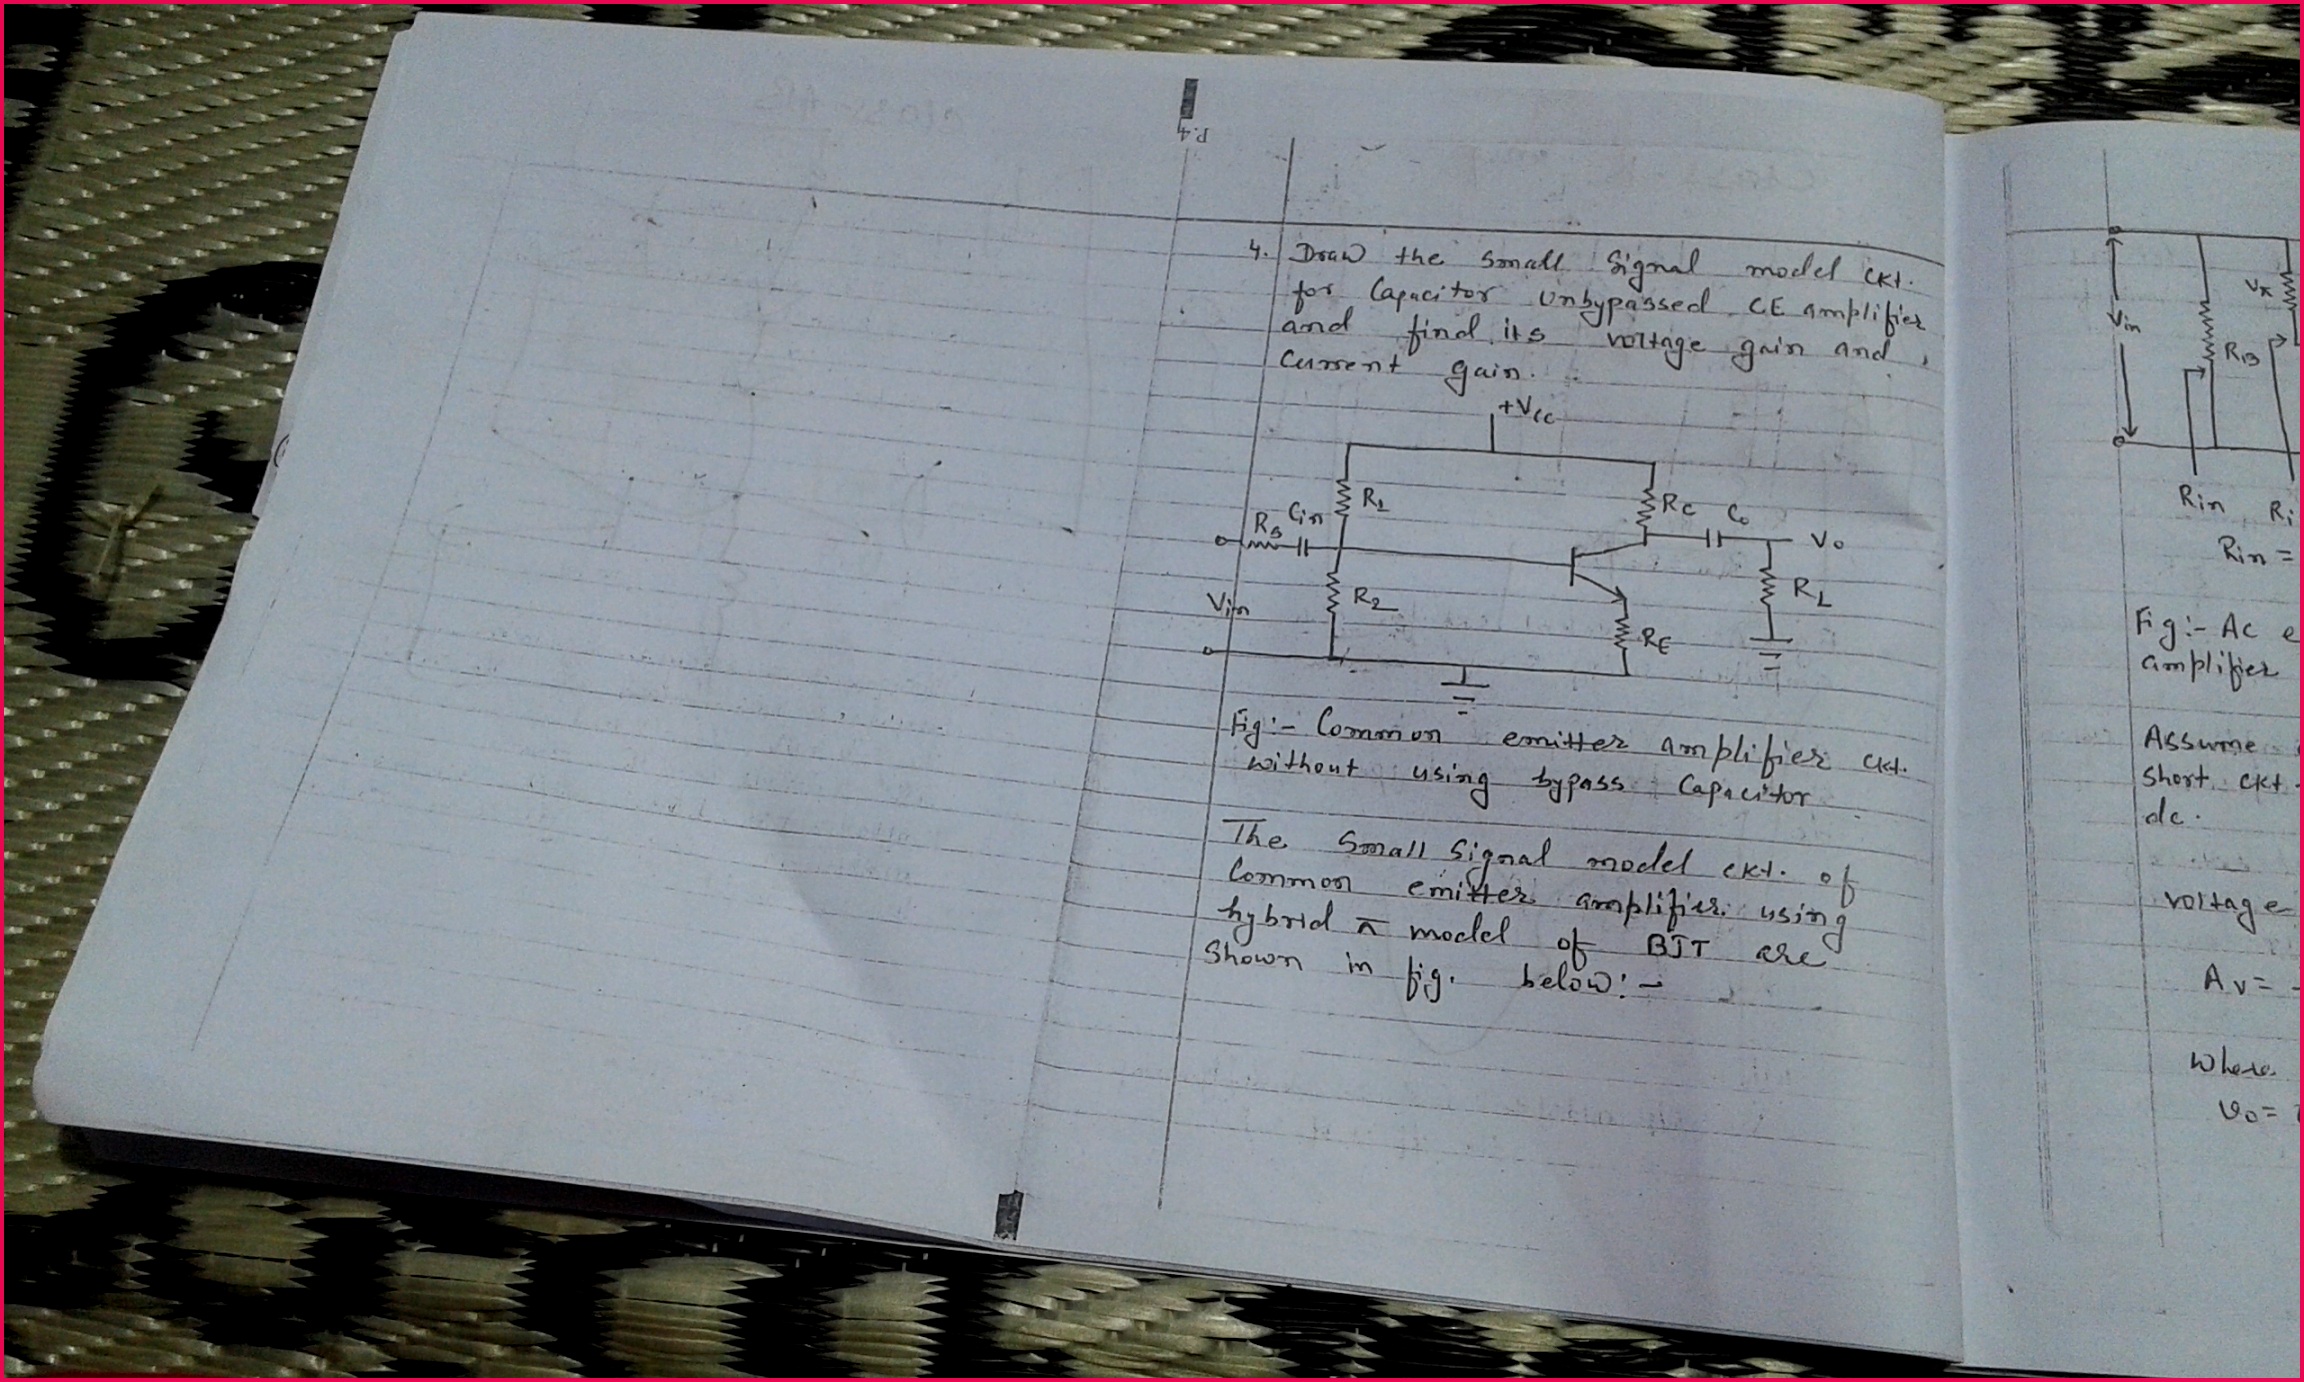 P.4
4. Draw the small signal model ckt.
for Capacitor Unbypassed CE amplifier
and find its voltage gain and
Current gain.
+Vcc
R1
RC
Co
Vo
Rs
Cin
Vin
R2
RE
RL
Fig:- Common emitter amplifier ckt.
without using bypass Capacitor
The small signal model ckt. of
Common emitter amplifier using
hybrid π model of BJT are
Shown in fig. below:-
Vin
RB
Vπ
Rin
Ri
Rin =
Fig:- AC e
amplifier
Assume
short ckt.
dc.
voltage
Av= -
Where
vo=